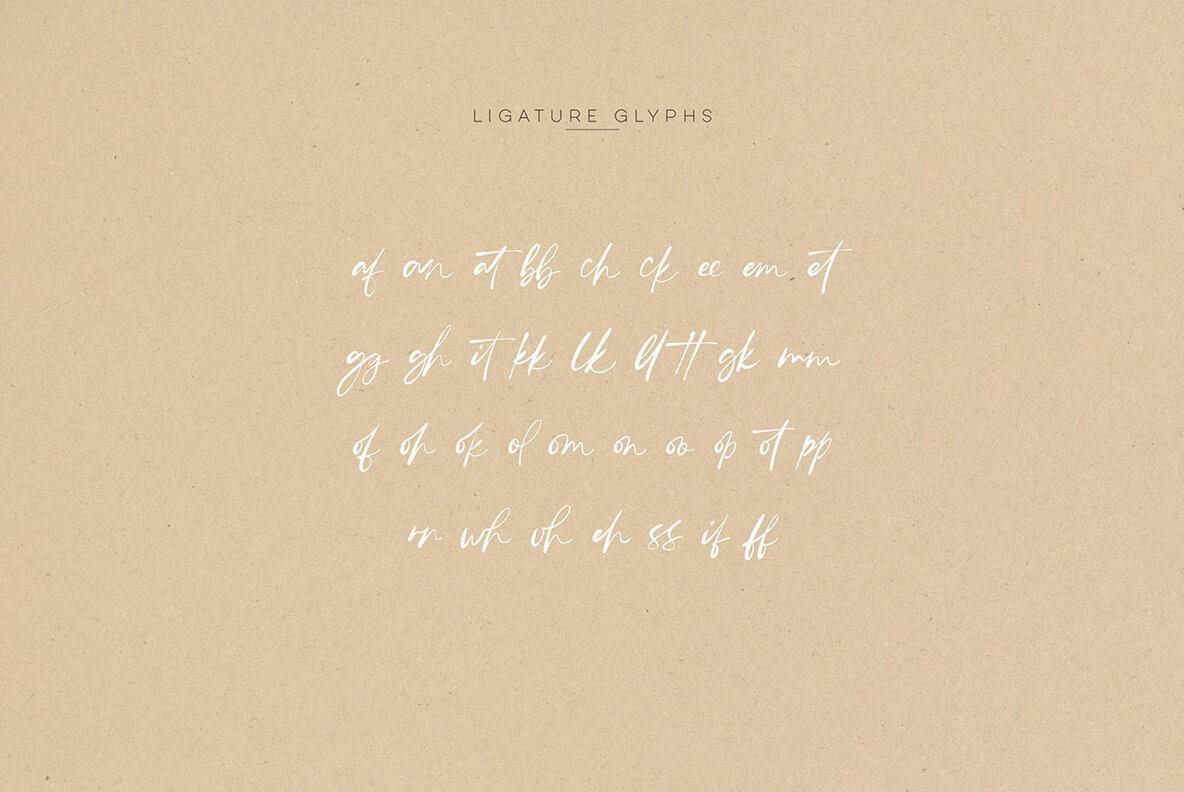 LIGATURE GLYPHS
af an at bb ch ck ee em et
gg gh it kk lk lt tt gk mm
of oh ok ol om on oo op ot pp
rr wh vh eh ss if ff